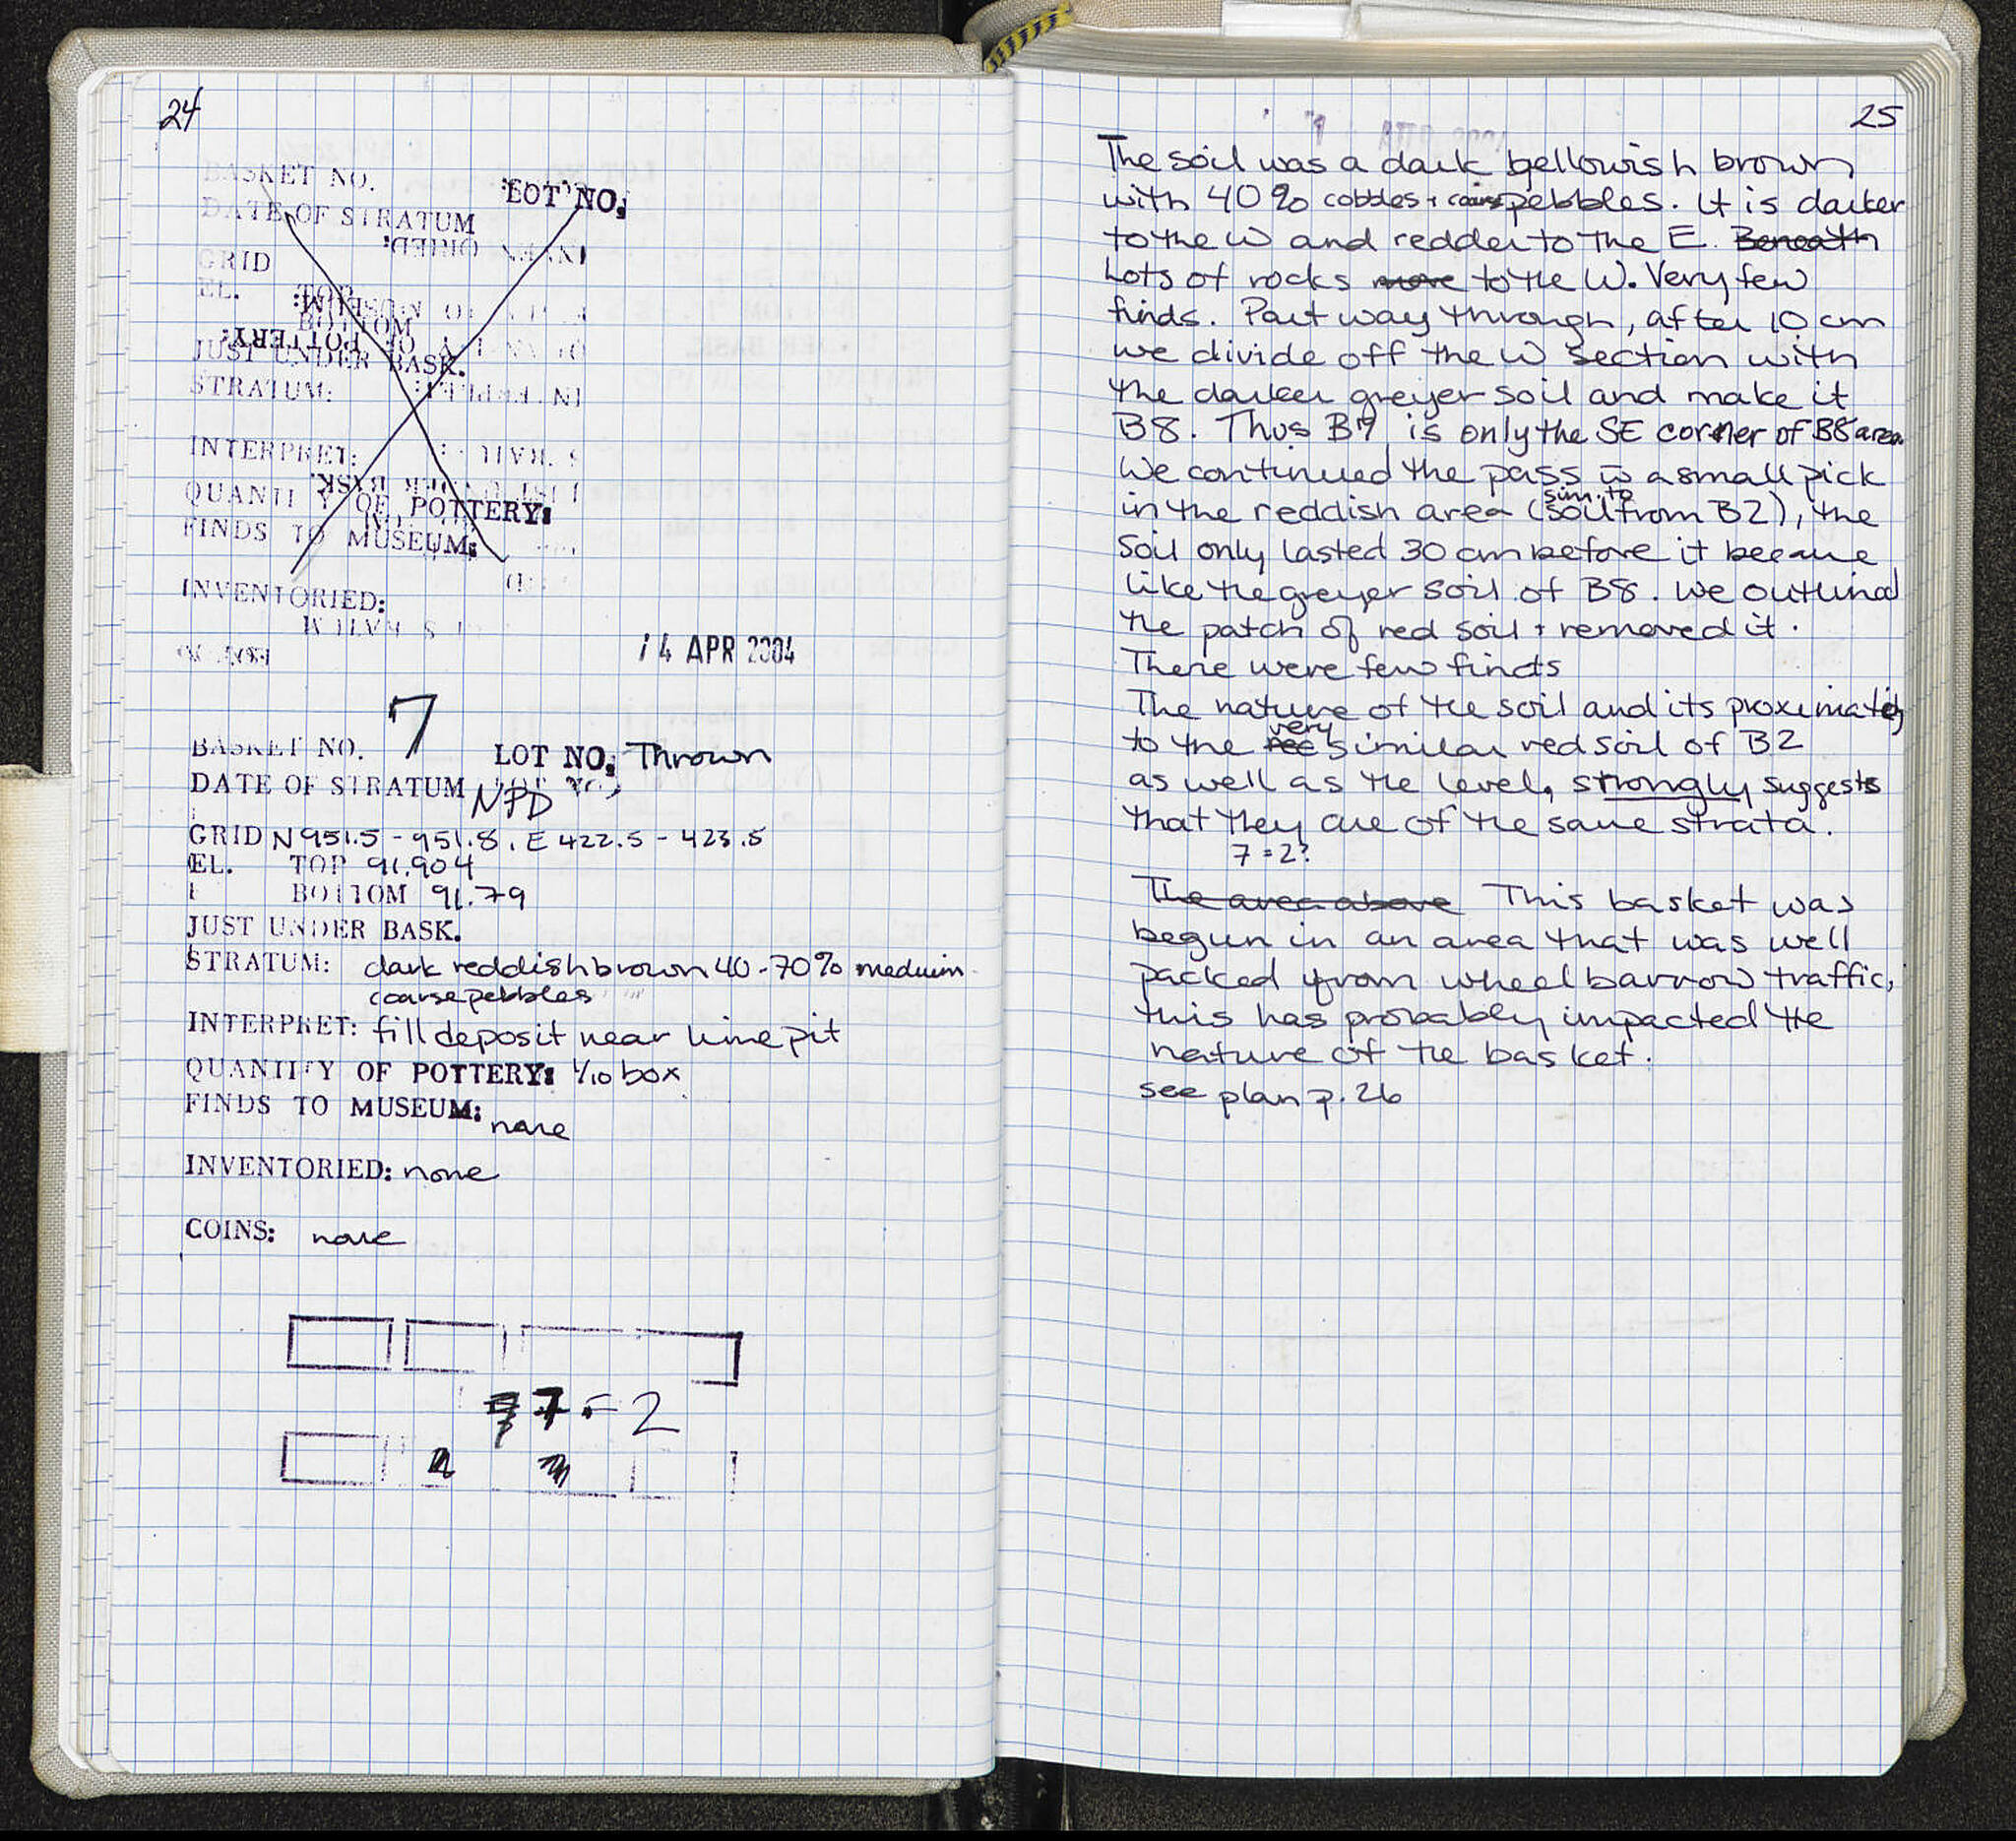 24
BASKET NO. LOT NO:
DATE OF STRATUM
GRID
EL. TOP
BOTTOM
JUST UNDER BASK.
STRATUM:
INTERPRET:
QUANTITY OF POTTERY:
FINDS TO MUSEUM:
INVENTORIED:
14 APR 2004
BASKET NO. 7 LOT NO: Thrown
DATE OF STRATUM NPD
GRID N 951.5 - 951.8, E 422.5 - 423.5
EL. TOP 91.904
BOTTOM 91.79
JUST UNDER BASK.
STRATUM: dark reddish brown 40-70% meduim
coarse pebbles
INTERPRET: fill deposit near lime pit
QUANTITY OF POTTERY: 1/10 box
FINDS TO MUSEUM: none
INVENTORIED: none
COINS: none
7 = 2
25
The soil was a dark yellowish brown
with 40% cobbles + coarse pebbles. It is darker
to the W and redder to the E. Beneath
Lots of rocks more to the W. Very few
finds. Part way through, after 10 cm
we divide off the W section with
the darker greyer soil and make it
B8. Thus B7 is only the SE corner of B8 area
We continued the pass w a small pick
in the reddish area (sim. to soil from B2), the
soil only lasted 30 cm before it became
like the greyer soil of B8. We outlined
the patch of red soil + removed it.
There were few finds
The nature of the soil and its proximately
to the very similar red soil of B2
as well as the level, strongly suggests
that they are of the same strata.
7 = 2?
The area above This basket was
begun in an area that was well
packed from wheelbarrow traffic,
this has probably impacted the
nature of the basket.
see plan p. 26